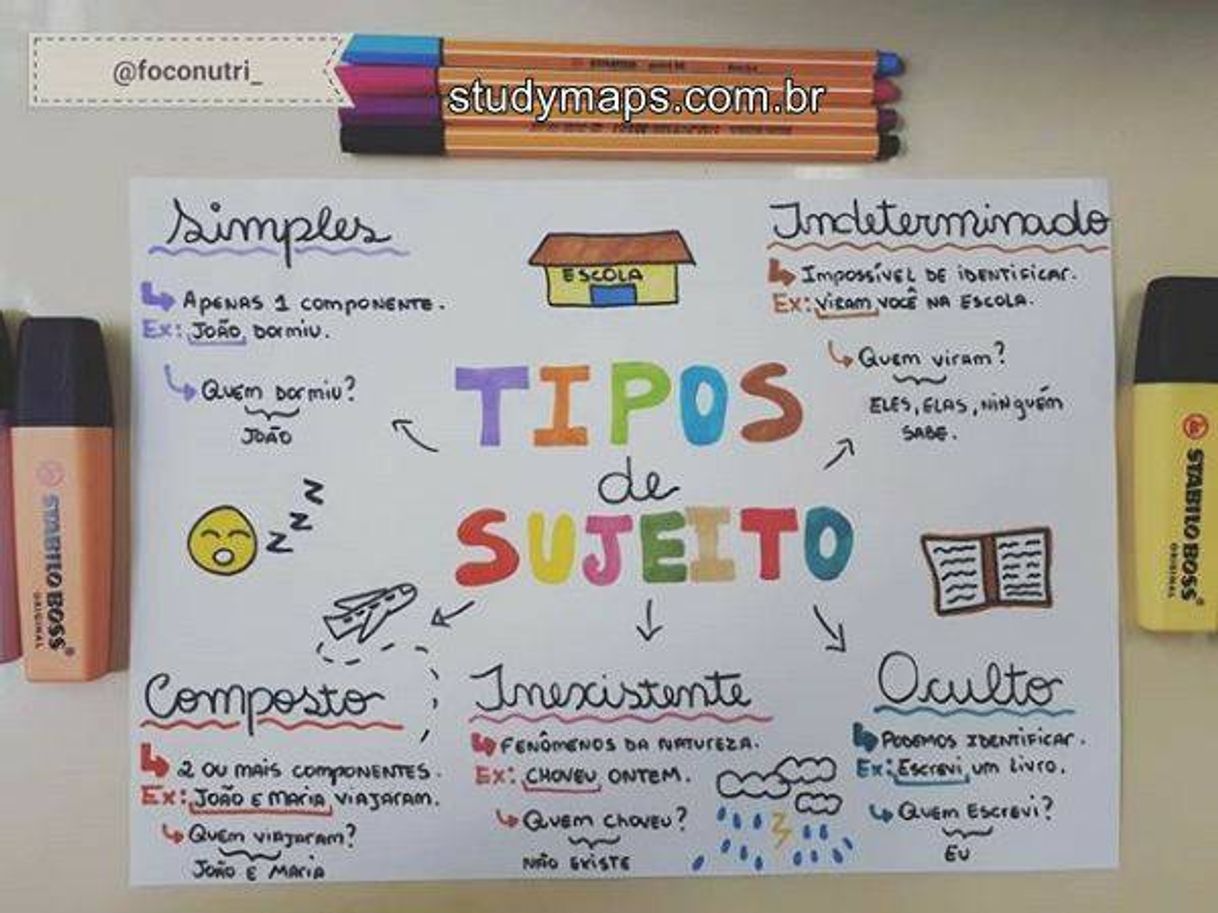 @foconutri_
studymaps.com.br
Simples
Apenas 1 componente.
Ex: João dormiu.
Quem dormiu?
João
ESCOLA
Indeterminado
Impossível de identificar.
Ex: Viram você na escola.
Quem viram?
Eles, elas, ninguém
sabe.
TIPOS
de
SUJEITO
z z z
Composto
2 ou mais componentes.
Ex: João e Maria viajaram.
Quem viajaram?
João e Maria
Inexistente
Fenômenos da natureza.
Ex: Choveu ontem.
Quem choveu?
Não existe
Oculto
Podemos identificar.
Ex: Escrevi um livro.
Quem escrevi?
Eu
STABILO BOSS
ORIGINAL
STABILO BOSS
ORIGINAL